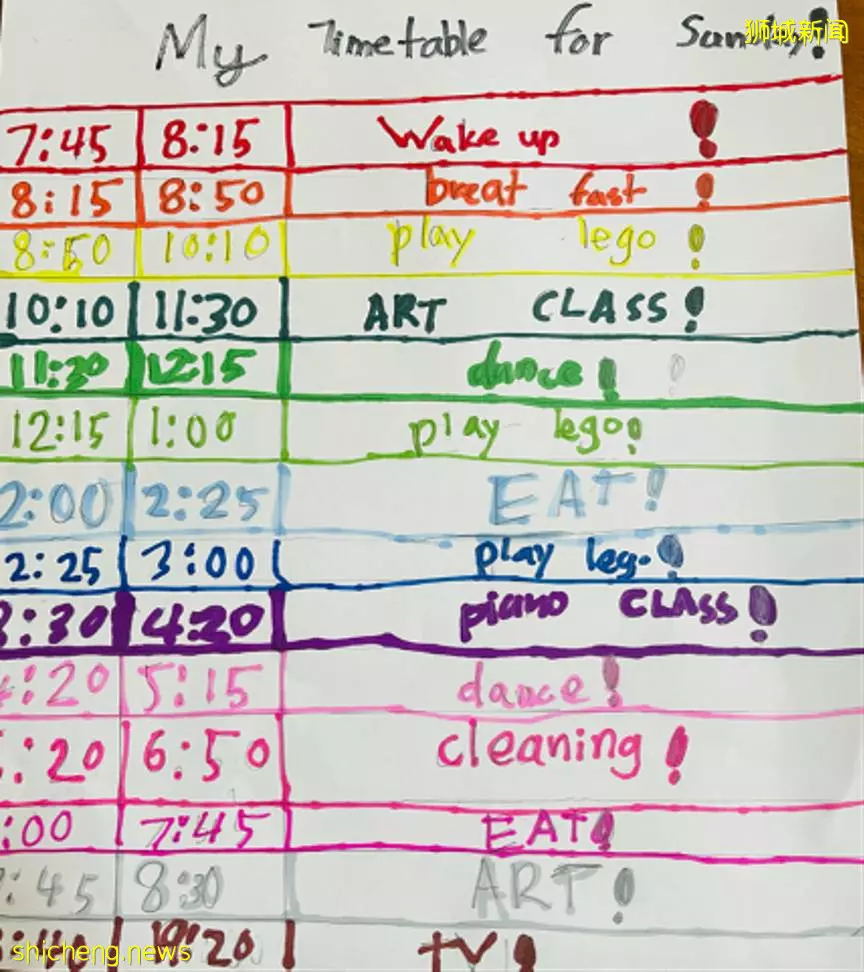 My Timetable for Sunday!
狮城新闻
7:45 8:15 Wake up !
8:15 8:50 breat fast !
8:50 10:10 play lego !
10:10 11:30 ART CLASS!
11:30 12:15 dance!
12:15 1:00 play lego!
2:00 2:25 EAT!
2:25 3:00 play lego!
3:30 4:20 piano CLASS!
:20 5:15 dance!
:20 6:50 cleaning!
:00 7:45 EAT!
:45 8:30 ART!
TV!
shicheng.news